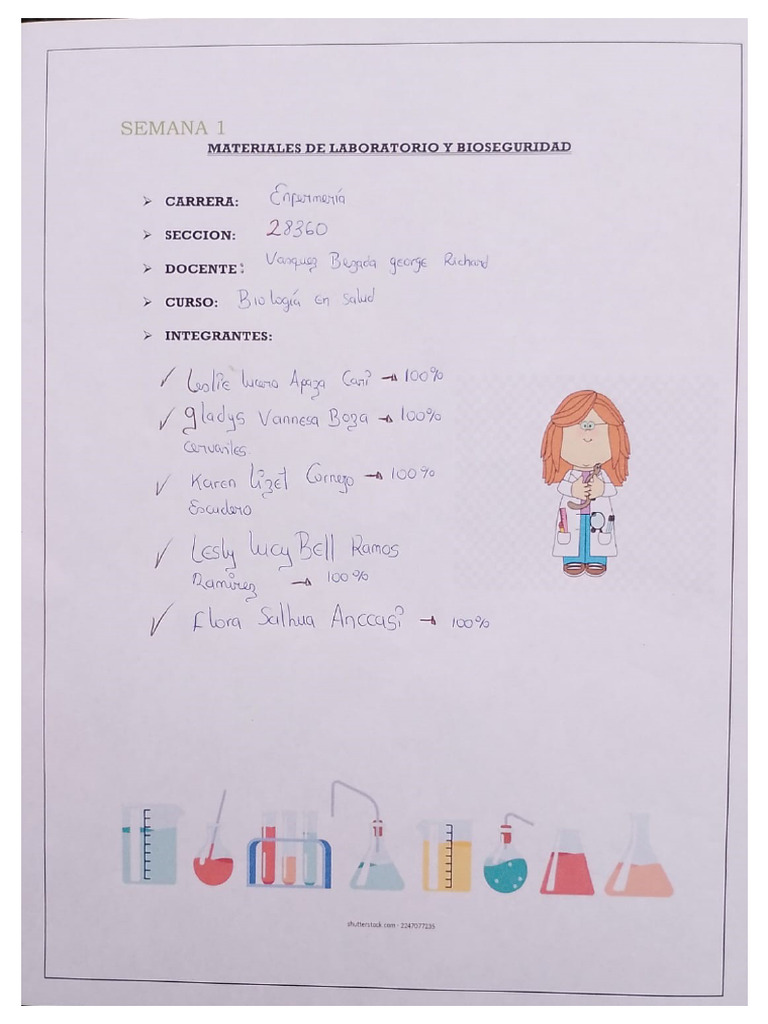 SEMANA 1
MATERIALES DE LABORATORIO Y BIOSEGURIDAD
➢ CARRERA: Enfermería
➢ SECCION: 28360
➢ DOCENTE: Vasquez Bezada george Richard
➢ CURSO: Biología en salud
➢ INTEGRANTES:
✓ Leslie lucero Apaza Cari → 100%
✓ gladys Vannesa Boza → 100%
Cervantes
✓ Karen Lizet Cornejo → 100%
Escudero
✓ Lesly Lucy Bell Ramos
Ramirez → 100%
✓ Flora Salhua Anccasi → 100%
shutterstock.com · 2247077235